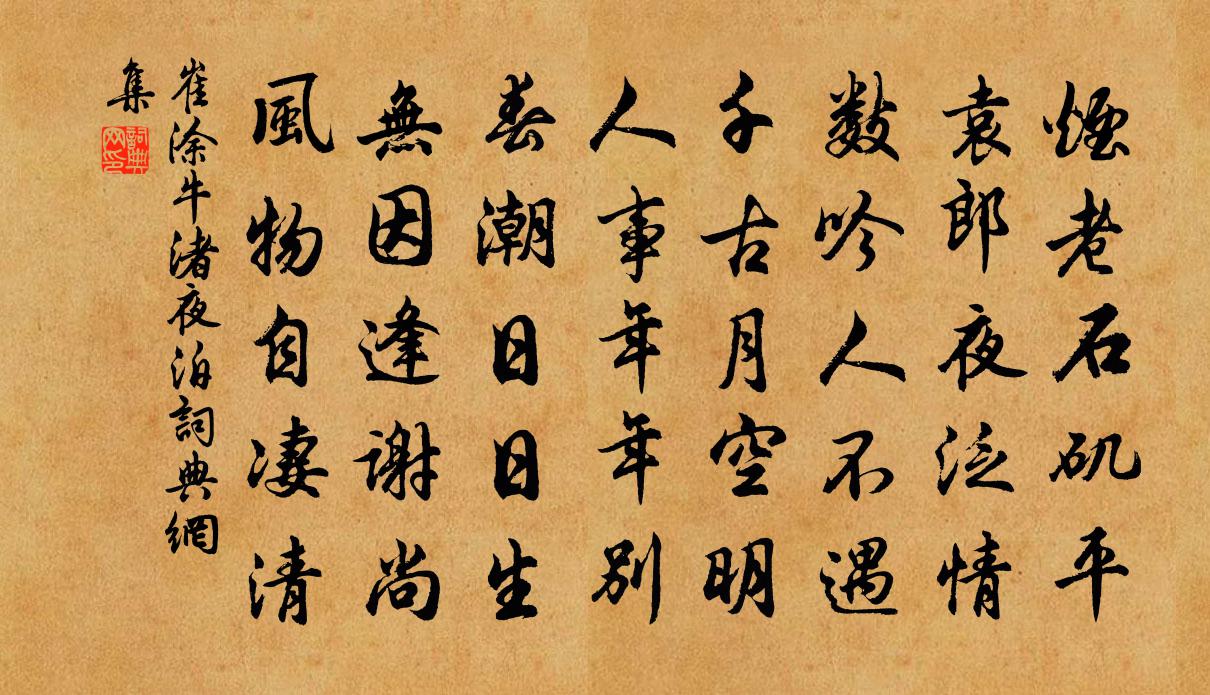 煙老石矶平
袁郎夜泛情
數吟人不遇
千古月空明
人事年年別
春潮日日生
無因逢謝尚
風物自凄清
崔涂牛渚夜泊詞典網
集
詞典
网印